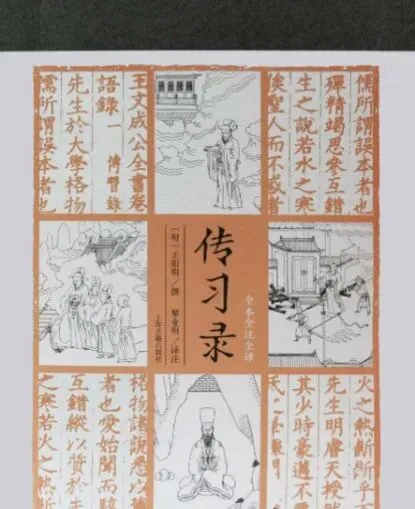 王文成公全書卷
語錄一 傳習錄
先生於大學格物
儒所謂誤本者也
儒所謂誤本者也
殫精竭思參互錯
生之說若水之寒
俟聖人而不惑者
传习录
全本全注全译
〔明〕王阳明/撰 黎业明/译注
上海古籍出版社
格物諸說悉以
者也愛始聞而
互錯縱以質於
之寒若火之熱
火之熱斷斷乎
先生明睿天授
其少時豪邁不